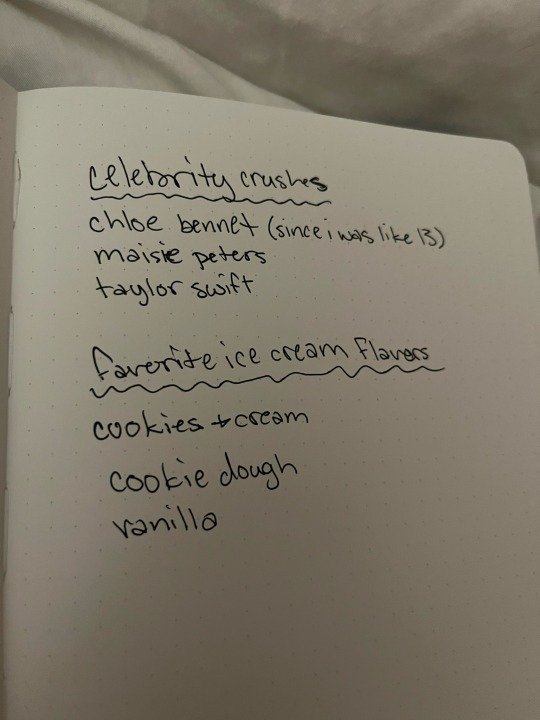 celebrity crushes
chloe bennet (since i was like 13)
maisie peters
taylor swift
favorite ice cream flavors
cookies + cream
cookie dough
vanilla